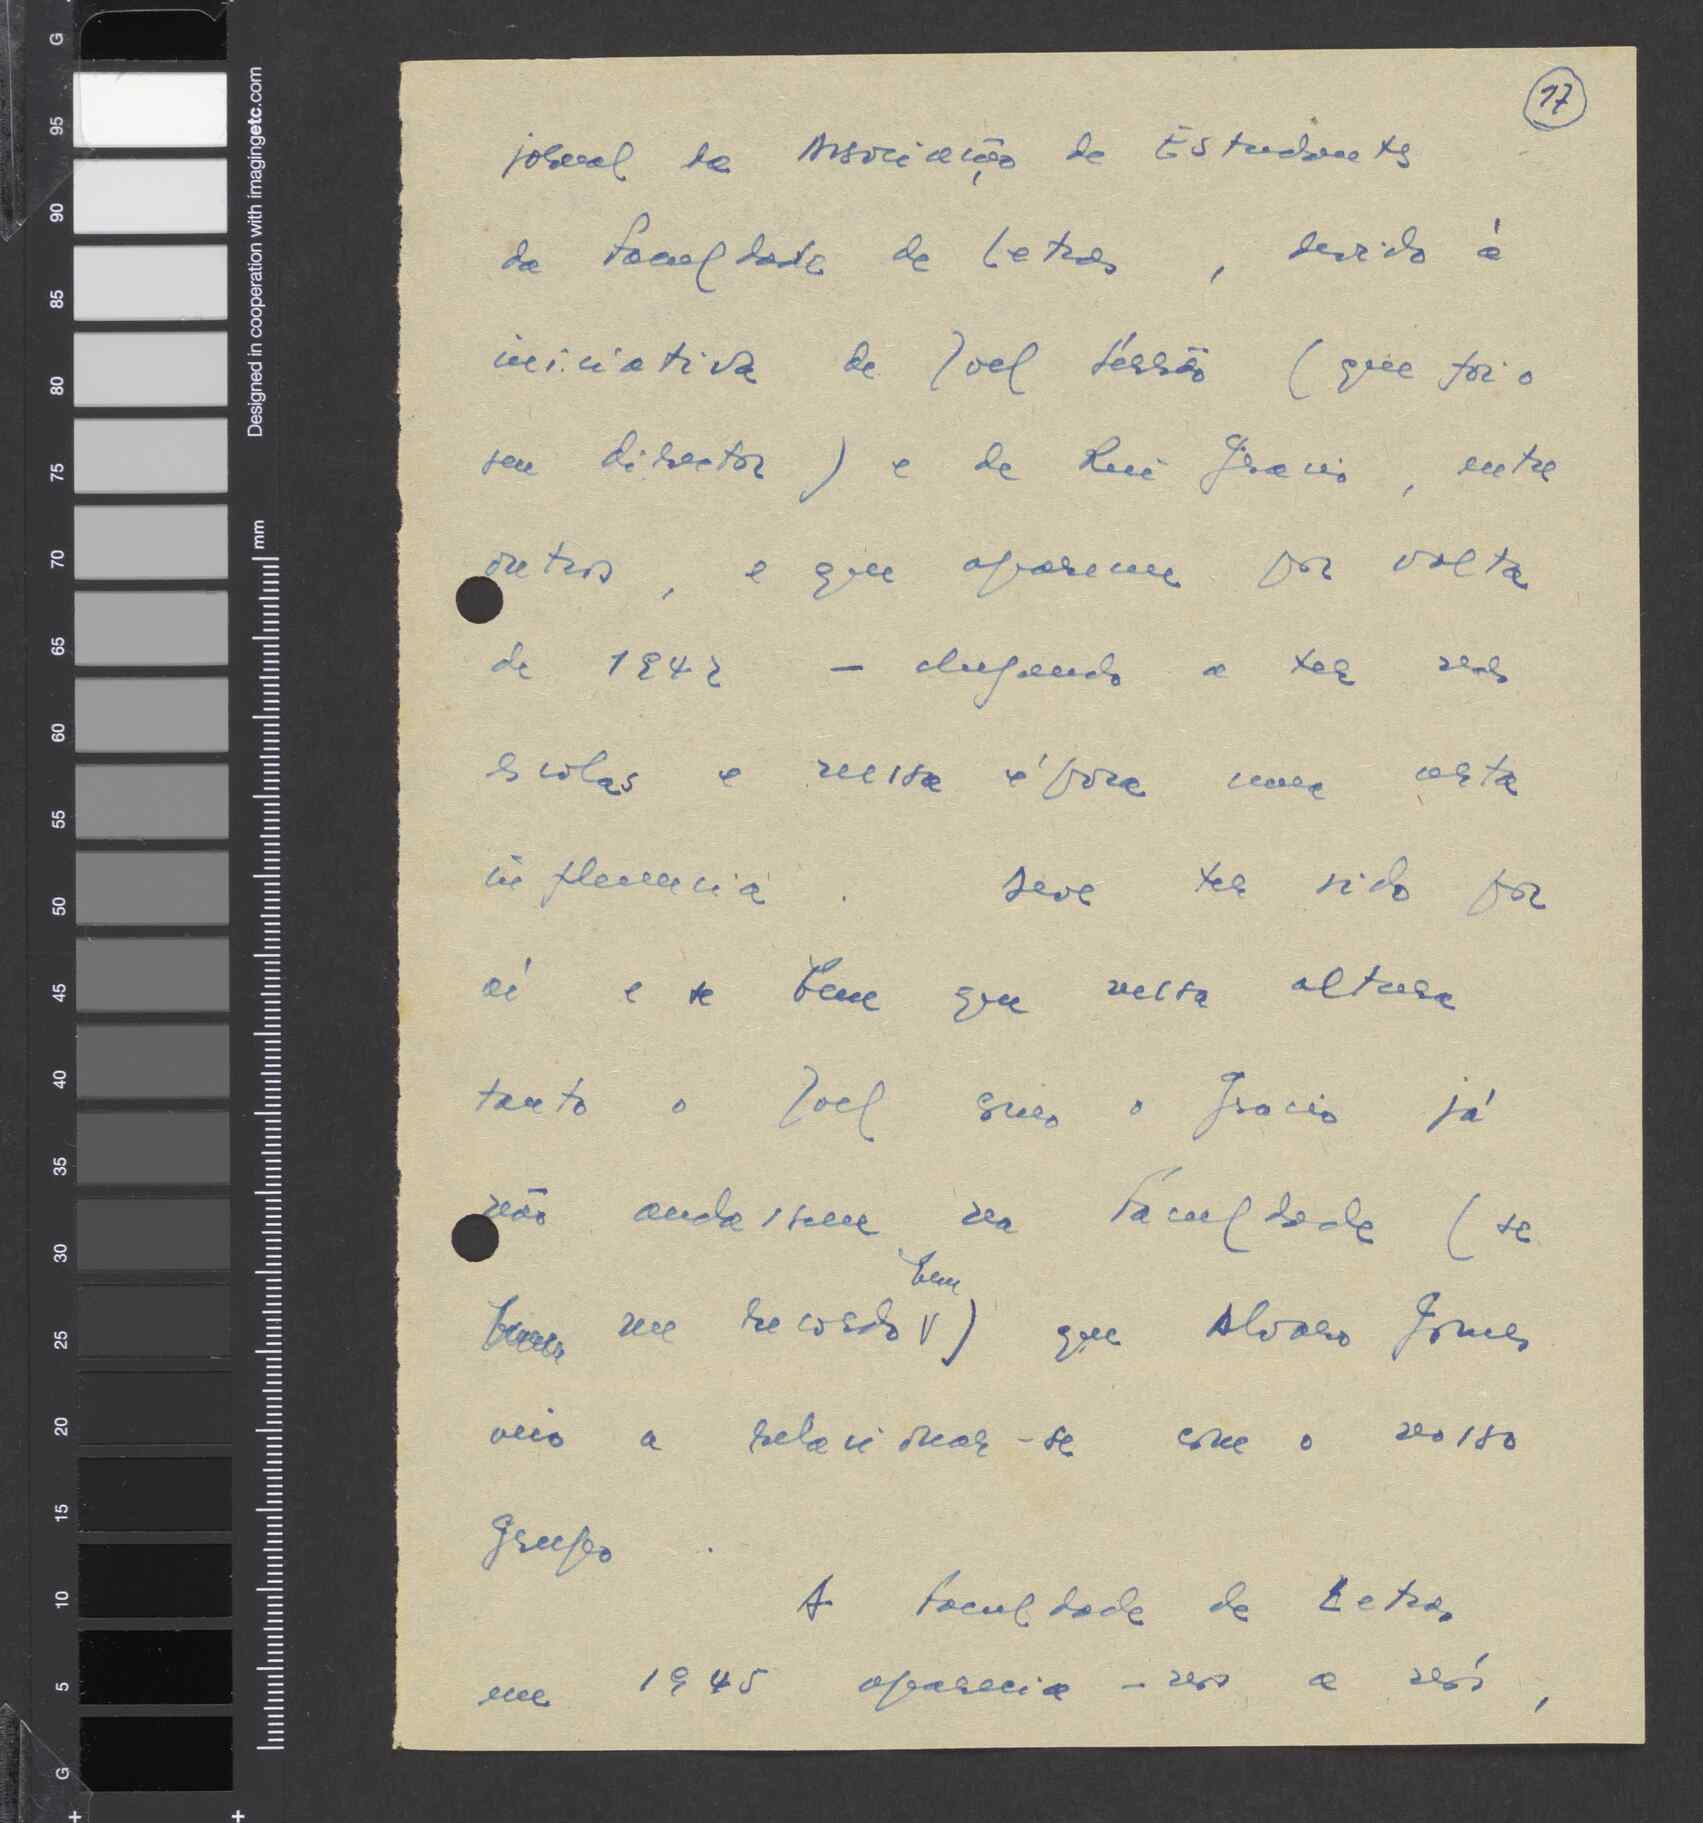 17
jornal da Associação de Estudantes
da Faculdade de Letras , devido à
iniciativa de Joel Serrão ( que foi o
seu director ) e de Rui Grácio , entre
outros , e que apareceu por volta
de 1942 — chegando a ter nas
escolas e nessa época uma certa
influencia . Deve ter sido por
aí e se bem que nessa altura
tanto o Joel como o Grácio já
não andassem na Faculdade ( se
bem
me recordo ) que Alvaro Gomes
veio a relacionar-se com o nosso
Grupo .
A Faculdade de Letras
em 1945 aparecia-nos a nós ,
G
95
90
85
80
75
70
65
60
55
50
45
40
35
30
25
20
15
10
5
G
Designed in cooperation with imagingetc.com
mm